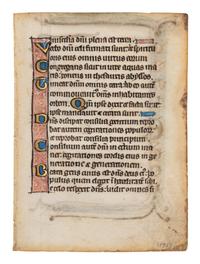 misericordia dñi plena est terra
Verbo dñi celi firmati sunt: et spiritu
oris eius omnis virtus eorum
Congregans sicut in utre aquas ma
ris: ponens in thesauris abyssos
omnes inhabitantes
orbem Qm̄ ipse dixit et facta sunt:
ipse mandavit et creata sunt
Dñs dissipat consilia gentium repro
bat autem cogitationes populorum
et reprobat consilia principum
Consilium autem dñi in eternum ma
net: cogitationes cordis eius in gene
ratione et generationem
Beata gens cuius est dñs
populus quem elegit in hereditatem sibi
De celo respexit dñs: vidit omnes fi